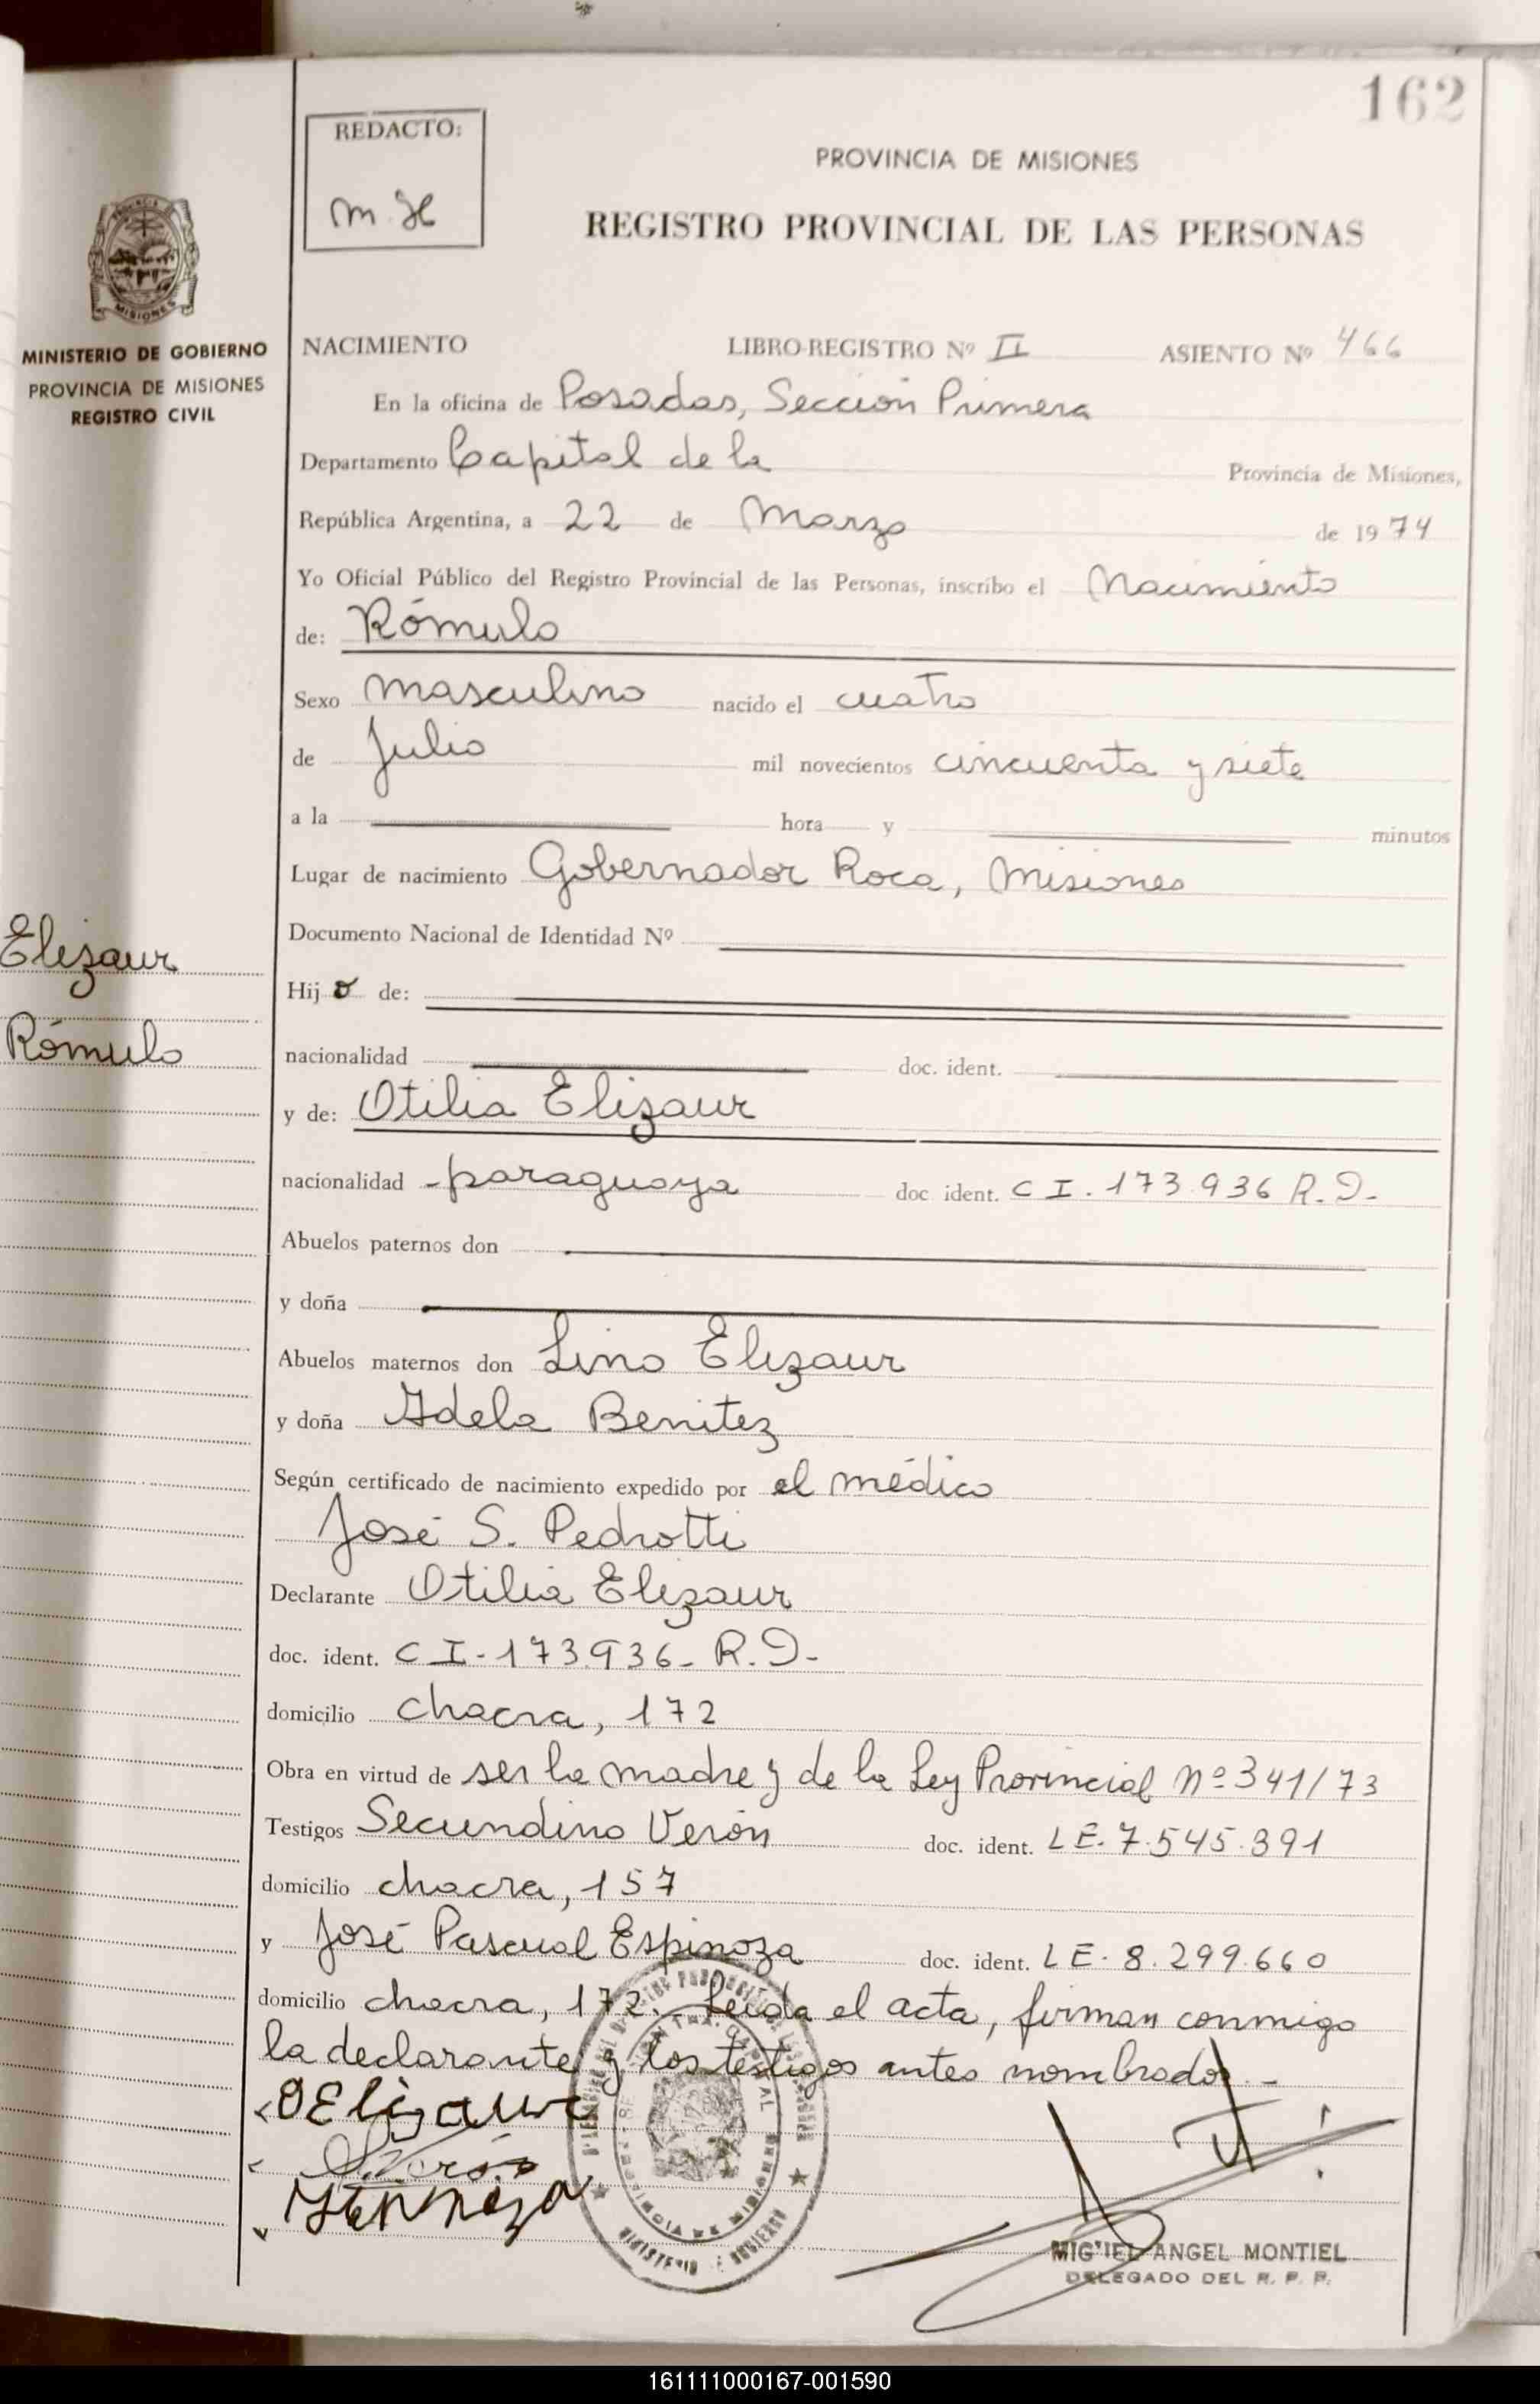 162
REDACTO:
m. H
PROVINCIA DE MISIONES
REGISTRO PROVINCIAL DE LAS PERSONAS
MINISTERIO DE GOBIERNO
PROVINCIA DE MISIONES
REGISTRO CIVIL
NACIMIENTO LIBRO-REGISTRO Nº II ASIENTO Nº 466
En la oficina de Posadas, Sección Primera
Departamento Capital de la Provincia de Misiones,
República Argentina, a 22 de Marzo de 1974
Yo Oficial Público del Registro Provincial de las Personas, inscribo el Nacimiento
de: Rómulo
Sexo masculino nacido el cuatro
de Julio mil novecientos cincuenta y siete
a la hora y minutos
Lugar de nacimiento Gobernador Roca, Misiones
Elizaur
Rómulo
Documento Nacional de Identidad Nº
Hijo de:
nacionalidad doc. ident.
y de: Otilia Elizaur
nacionalidad - paraguaya doc ident. C I. 173.936 R.D.-
Abuelos paternos don
y doña
Abuelos maternos don Lino Elizaur
y doña Adela Benitez
Según certificado de nacimiento expedido por el médico
José S. Pedrotti
Declarante Otilia Elizaur
doc. ident. C I - 173.936 - R.D.-
domicilio chacra, 172
Obra en virtud de ser la madre y de la Ley Provincial nº 341/73
Testigos Secundino Verón doc. ident. L E. 7.545.391
domicilio chacra, 157
y José Pascual Espinoza doc. ident. L E. 8.299.660
domicilio chacra, 172. Leída el acta, firman conmigo
la declarante y los testigos antes nombrados.-
OElizaur
MIGUEL ANGEL MONTIEL
DELEGADO DEL R. P. P.
161111000167-001590